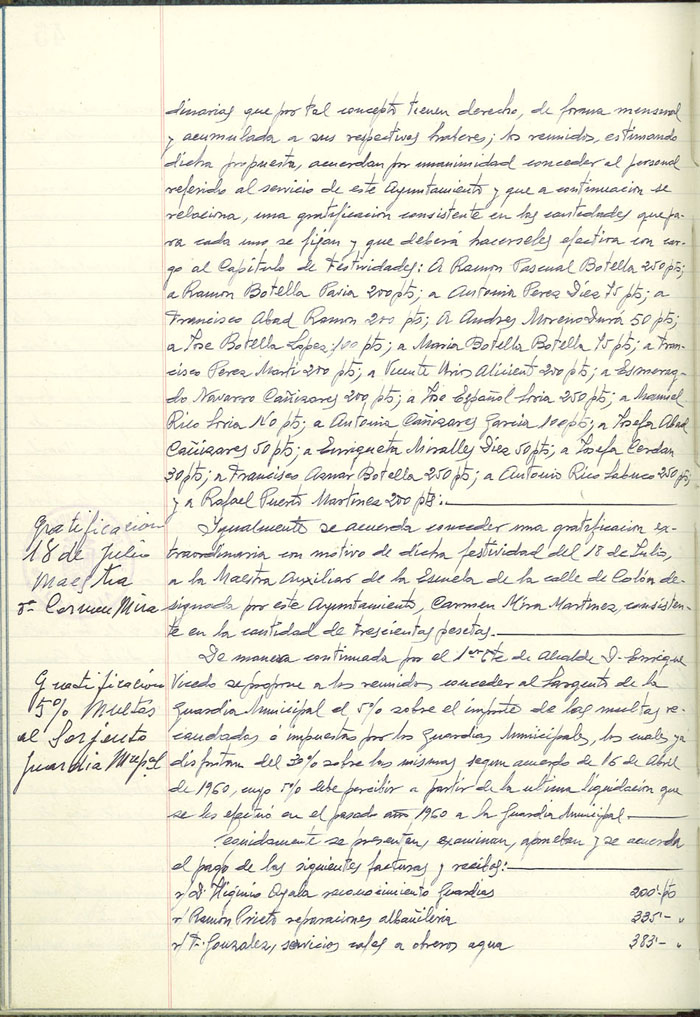 dinarias que por tal concepto tienen derecho, de forma mensual
y acumulada a sus respectivos haberes; los reunidos, estimando
dicha propuesta, acuerdan por unanimidad conceder al personal
referido al servicio de este Ayuntamiento y que a continuacion se
relaciona, una gratificacion consistente en las cantidades que pa-
ra cada uno se fijan y que deberá hacerseles efectiva con car-
go al Capítulo de Festividades: A Ramon Pascual Botella 250 pts;
a Ramon Botella Pavia 200 pts; a Antonia Perez Díez 75 pts; a
Francisco Abad Ramon 200 pts; A Andres Moreno Durá 50 pts;
a Jose Botella Lopez 100 pts; a Maria Botella Botella 75 pts; a Fran-
cisco Perez Marti 200 pts; a Vicente Uris 200 pts; a Esmerag-
do Navarro Cañizares 200 pts; a Jose Español Soria 250 pts; a Manuel
Rico Soria pts; a Antonia Cañizares Garcia 100 pts; a Josefa Abad
Cañizares 50 pts; a Enriqueta Miralles Díez 50 pts; a Josefa Cerdan
30 pts; a Francisco Aznar Botella 250 pts; a Antonio Rico 250 pts
y a Rafael Puerto Martinez 200 pts:
Gratificacion
18 de Julio
Maestra
Dª Carmen Mira
Igualmente se acuerda conceder una gratificacion ex-
traordinaria con motivo de dicha festividad del 18 de Julio,
a la Maestra Auxiliar de la Escuela de la calle de Colón de-
signada por este Ayuntamiento, Carmen Mira Martinez, consisten-
te en la cantidad de trescientas pesetas.
Gratificación
5% Multas
al Sarjento
Guardia Mupal
De manera continuada por el 1er Tte de Alcalde D. Enrique
Vicedo se propone a los reunidos conceder al Sargento de la
Guardia Municipal el 5% sobre el importe de las multas re-
caudadas o impuestas por los Guardias Municipales, los cuales ya
disfrutan del 30% sobre las mismas segun acuerdo de 16 de Abril
de 1960, cuyo 5% debe percibir a partir de la ultima liquidación que
se les efectuó en el pasado año 1960 a la Guardia Municipal
Seguidamente se presentan, examinan, aprueban y se acuerda
el pago de las siguientes facturas y recibos:
r/ D. Higinio Ayala reconocimiento Guardias 200'- pts
r/ Ramon Prieto reparaciones albañileria 335'- "
r/ F. Gonzalez, servicios cafes a obreros agua 383'- "